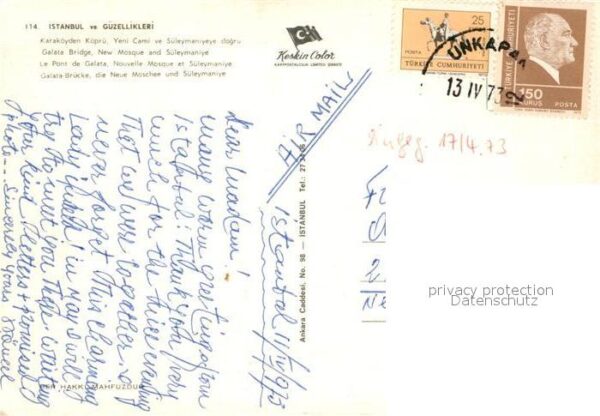 114 ISTANBUL ve GÜZELLİKLERİ
Karaköyden Köprü, Yeni Cami ve Süleymaniyeye doğru
Galata Bridge, New Mosque and Süleymaniye
Le Pont de Galata, Nouvelle Mosque et Süleymaniye
Galata-Brücke, die Neue Moschee und Süleymaniye
Keskin Color
KARTPOSTALCILIK LIMITED ŞİRKETİ
25
POSTA
TÜRKİYE CUMHURİYETİ
TÜRKİYE CUMHURİYETİ
150
KURUŞ POSTA
UNKAPANI
13 IV 73
17/4.73
AIR MAIL
Dear Madam!
many warm greetings from
Istanbul! Thank you very
much for the nice evening
that we were together. I
never forget this charming
Lady! in May I will
try to meet you then. waiting
your kind letters + promised
photo - Sincerely yours
Istanbul
Ankara Caddesi, No. 98 — İSTANBUL Tel.:
HER HAKKI MAHFUZDUR
privacy protection
Datenschutz